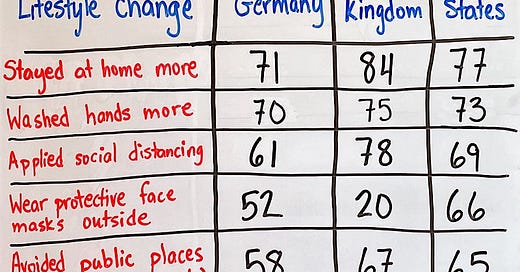 Lifestyle Change Germany Kingdom States
Stayed at home more 71 84 77
Washed hands more 70 75 73
Applied social distancing 61 78 69
Wear protective face
masks outside 52 20 66
Avoided public places 58 67 65